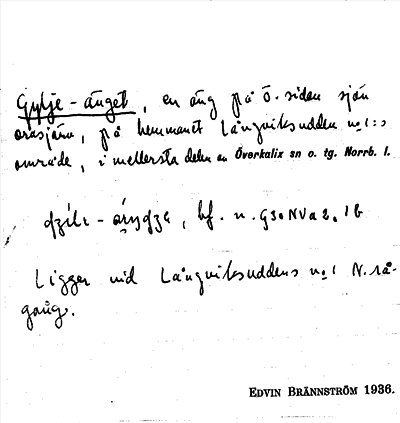 Gylje-änget, en äng på ö. sidan sjön
oräsjärv, på hemmanet Långviksudden no 1:s
område, i mellersta delen av Överkalix sn o. tg. Norrb. l.
bf. n. G30NVa2, 1b
Ligger vid Långviksuddens no 1 N. rå-
gång.
EDVIN BRÄNNSTRÖM 1936.